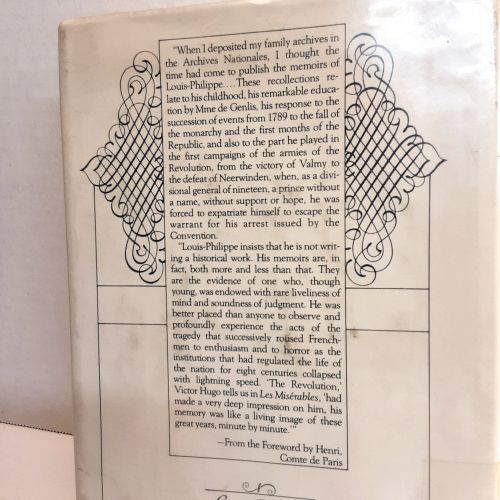 "When I deposited my family archives in
the Archives Nationales, I thought the
time had come to publish the memoirs of
Louis-Philippe.... These recollections re-
late to his childhood, his remarkable educa-
tion by Mme de Genlis, his response to the
succession of events from 1789 to the fall of
the monarchy and the first months of the
Republic, and also to the part he played in
the first campaigns of the armies of the
Revolution, from the victory of Valmy to
the defeat of Neerwinden, when, as a divi-
sional general of nineteen, a prince without
a name, without support or hope, he was
forced to expatriate himself to escape the
warrant for his arrest issued by the
Convention.
"Louis-Philippe insists that he is not writ-
ing a historical work. His memoirs are, in
fact, both more and less than that. They
are the evidence of one who, though
young, was endowed with rare liveliness of
mind and soundness of judgment. He was
better placed than anyone to observe and
profoundly experience the acts of the
tragedy that successively roused French-
men to enthusiasm and to horror as the
institutions that had regulated the life of
the nation for eight centuries collapsed
with lightning speed. 'The Revolution,'
Victor Hugo tells us in Les Misérables, 'had
made a very deep impression on him, his
memory was like a living image of these
great years, minute by minute.'"
—From the Foreword by Henri,
Comte de Paris